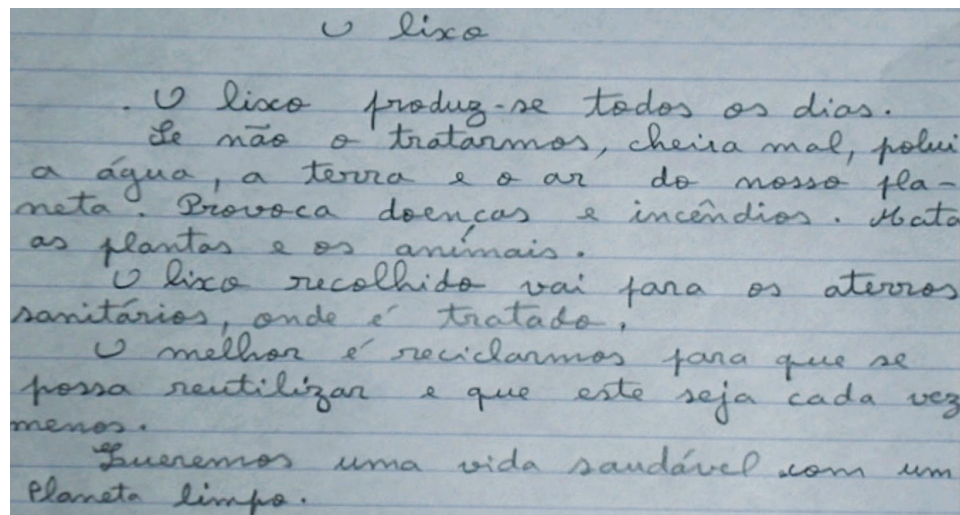 O lixo
. O lixo produz-se todos os dias.
Se não o tratarmos, cheira mal, polui
a água, a terra e o ar do nosso pla-
neta. Provoca doenças e incêndios. Mata
as plantas e os animais.
O lixo recolhido vai para os aterros
sanitários, onde é tratado.
O melhor é reciclarmos para que se
possa reutilizar e que este seja cada vez
menos.
Queremos uma vida saudável com um
Planeta limpo.